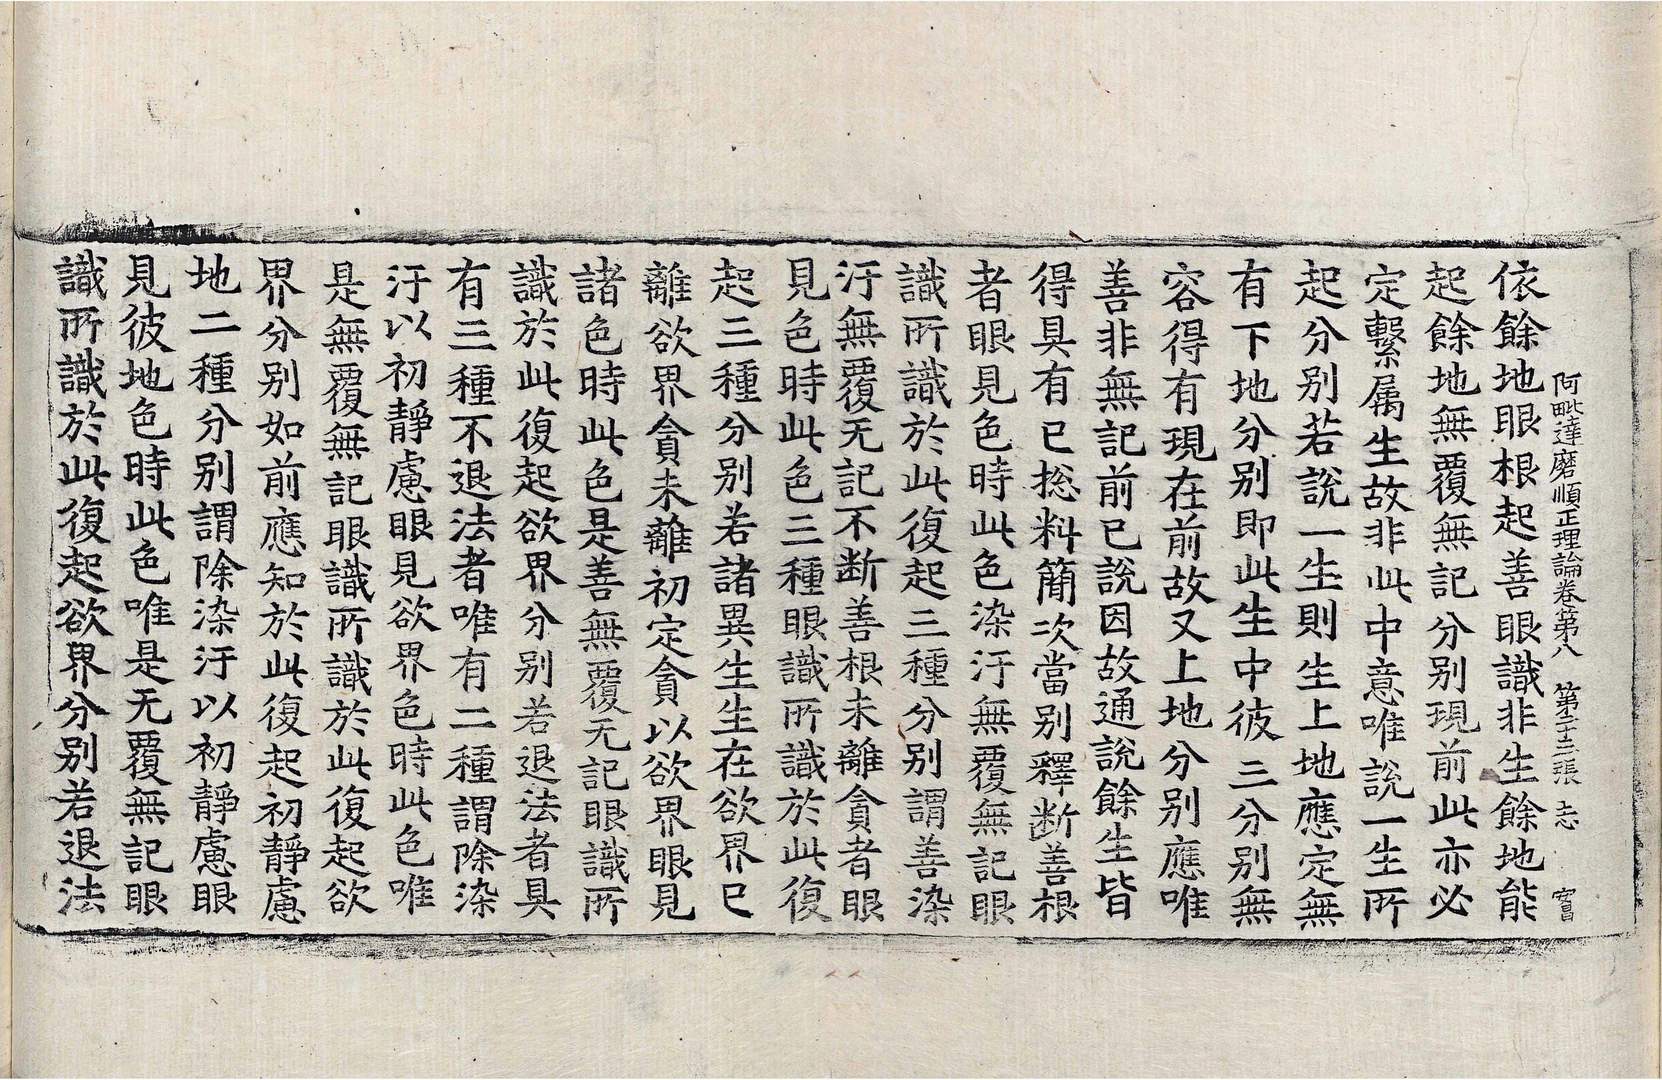 阿毗達磨順正理論卷第八　第二十三張　志　富昌
依餘地眼根起善眼識非生餘地能
起餘地無覆無記分別現前此亦必
定繫属生故非此中意唯說一生所
起分別若說一生則生上地應定無
有下地分別即此生中彼三分別無
容得有現在前故又上地分別應唯
善非無記前已說因故通說餘生皆
得具有已揔料簡次當別釋斷善根
者眼見色時此色染汙無覆無記眼
識所識於此復起三種分別謂善染
汙無覆无記不斷善根未離貪者眼
見色時此色三種眼識所識於此復
起三種分別若諸異生生在欲界已
離欲界貪未離初定貪以欲界眼見
諸色時此色是善無覆无記眼識所
識於此復起欲界分別若退法者具
有三種不退法者唯有二種謂除染
汙以初靜慮眼見欲界色時此色唯
是無覆無記眼識所識於此復起欲
界分別如前應知於此復起初靜慮
地二種分別謂除染汙以初靜慮眼
見彼地色時此色唯是无覆無記眼
識所識於此復起欲界分別若退法